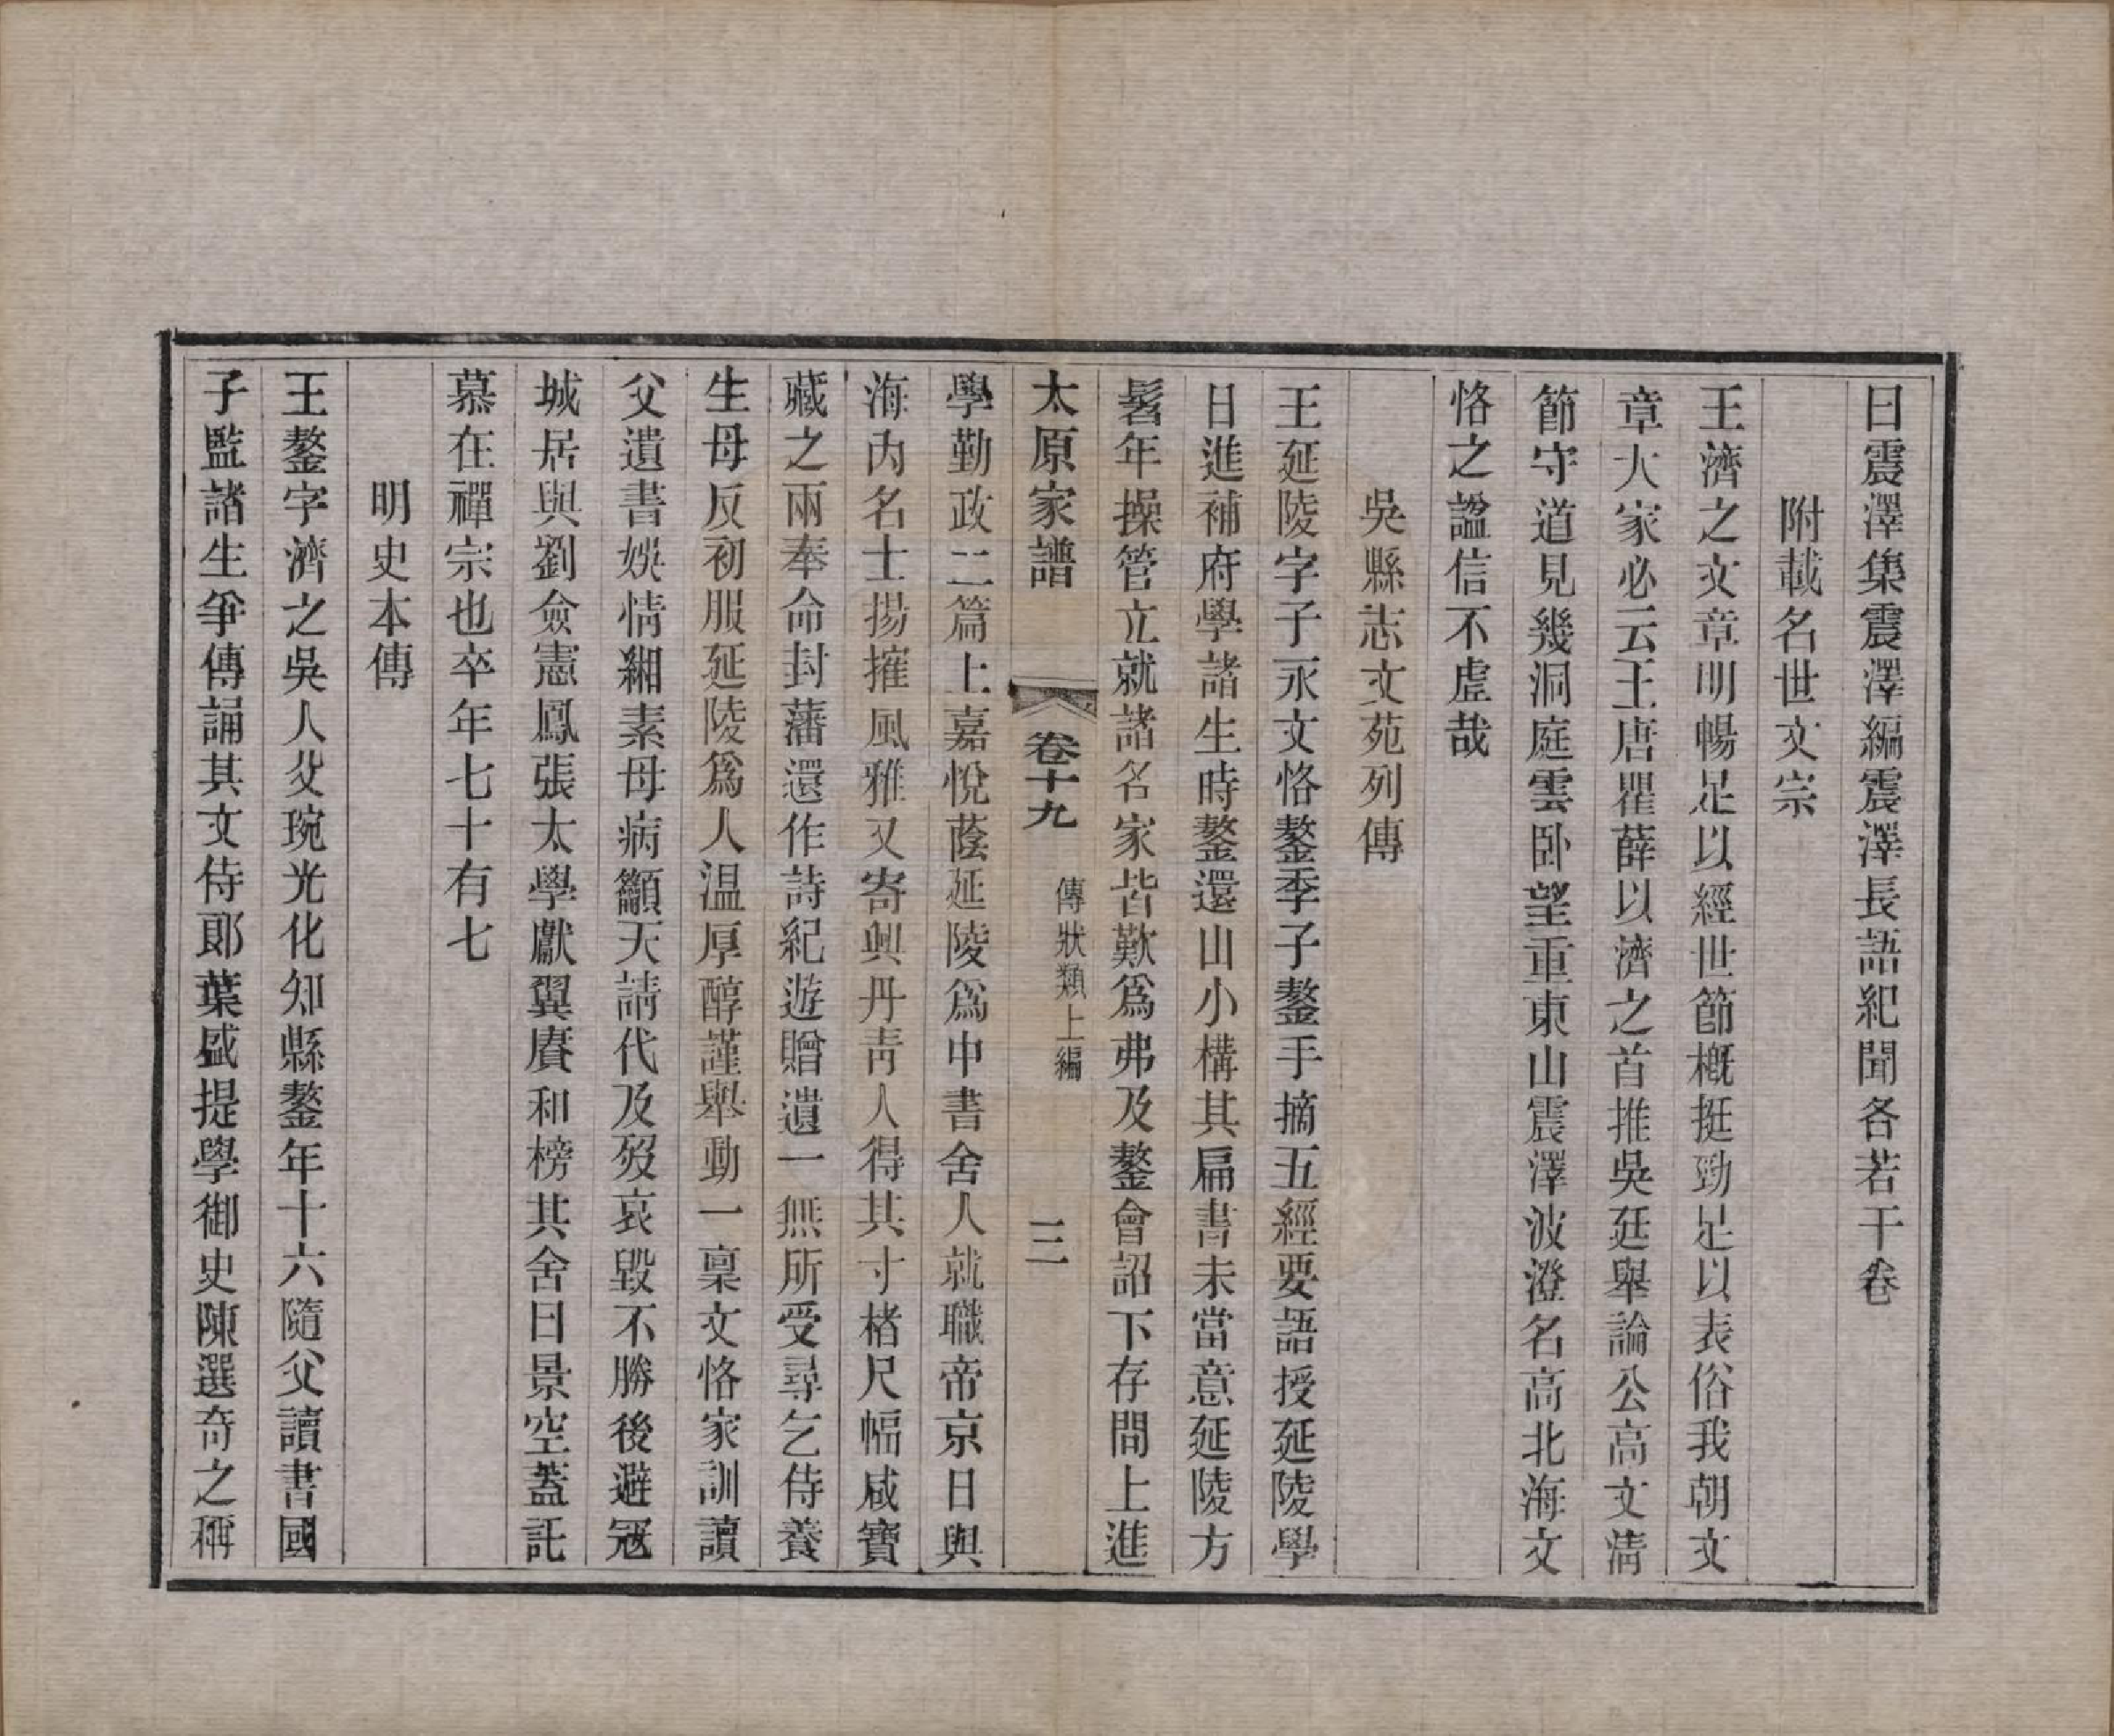 曰震澤集震澤編震澤長語紀聞各若干卷
附載名世文宗
王濟之文章明暢足以經世節槪挺勁足以表俗我朝文
章大家必云王唐瞿薛以濟之首推吳廷舉論公高文淸
節守道見幾洞庭雲卧望重東山震澤波澄名高北海文
恪之諡信不虛哉
吳縣志文苑列傳
王延陵字子永文恪鏊季子鏊手摘五經要語授延陵學
日進補府學諸生時鏊還山小構其扁書未當意延陵方
髫年操管立就諸名家皆歎爲弗及鏊會詔下存問上進
太原家譜 卷十九 傳狀類上編 三
學勤政二篇上嘉悅蔭延陵爲中書舍人就職帝京日與
海內名士揚搉風雅又寄興丹靑人得其寸楮尺幅咸寶
藏之兩奉命封藩還作詩紀遊贈遺一無所受尋乞侍養
生母反初服延陵爲人温厚醇謹舉動一稟文恪家訓讀
父遺書娛情緗素母病籲天請代及歿哀毀不勝後避寇
城居與劉僉憲鳳張太學獻翼賡和榜其舍曰景空蓋託
慕在禪宗也卒年七十有七
明史本傳
王鏊字濟之吳人父琬光化知縣鏊年十六隨父讀書國
子監諸生爭傳誦其文侍郞葉盛提學御史陳選奇之稱